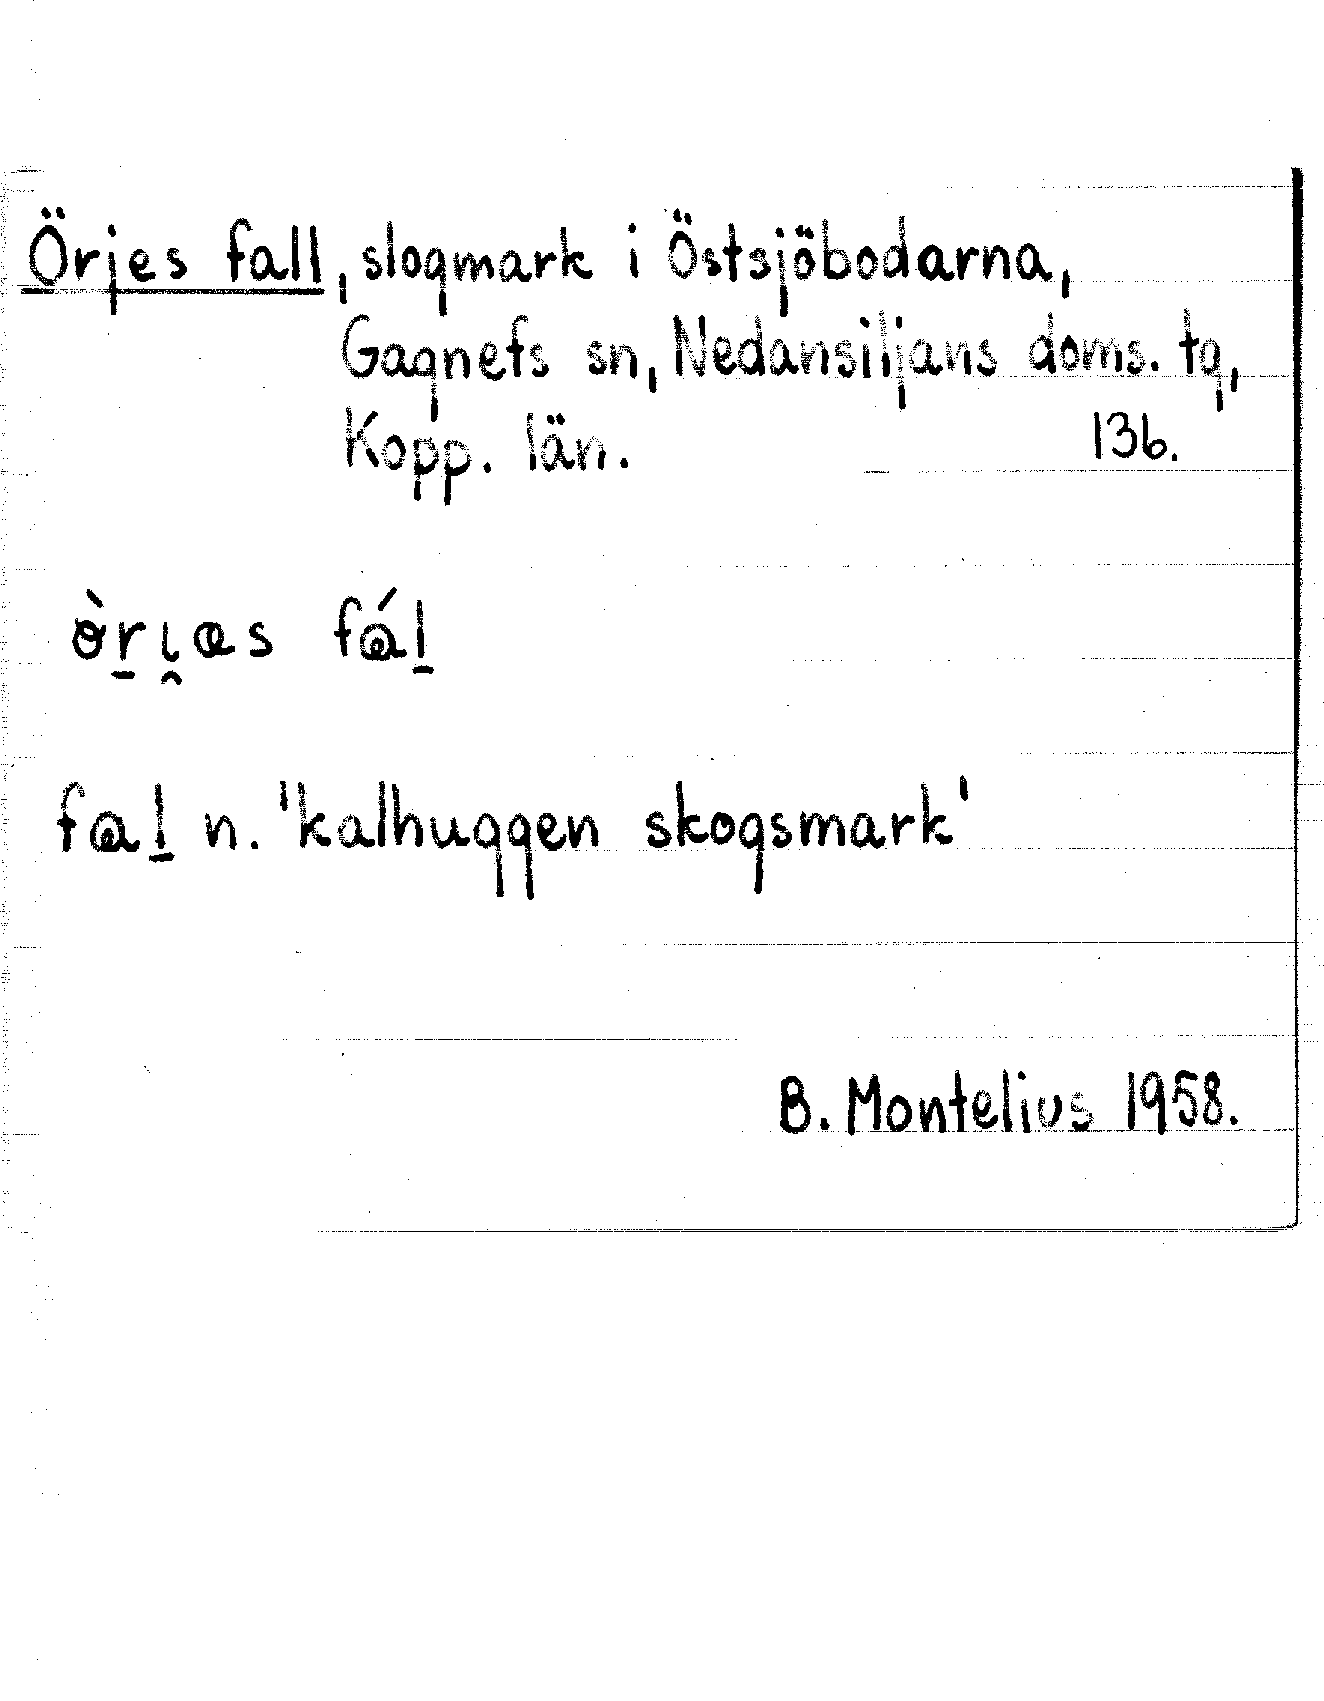 Örjes fall, slogmark i Östsjöbodarna,
Gagnefs sn, Nedansiljans doms. tg,
Kopp. län. 136.
fal n. 'kalhuggen skogsmark'
B. Montelius 1958.